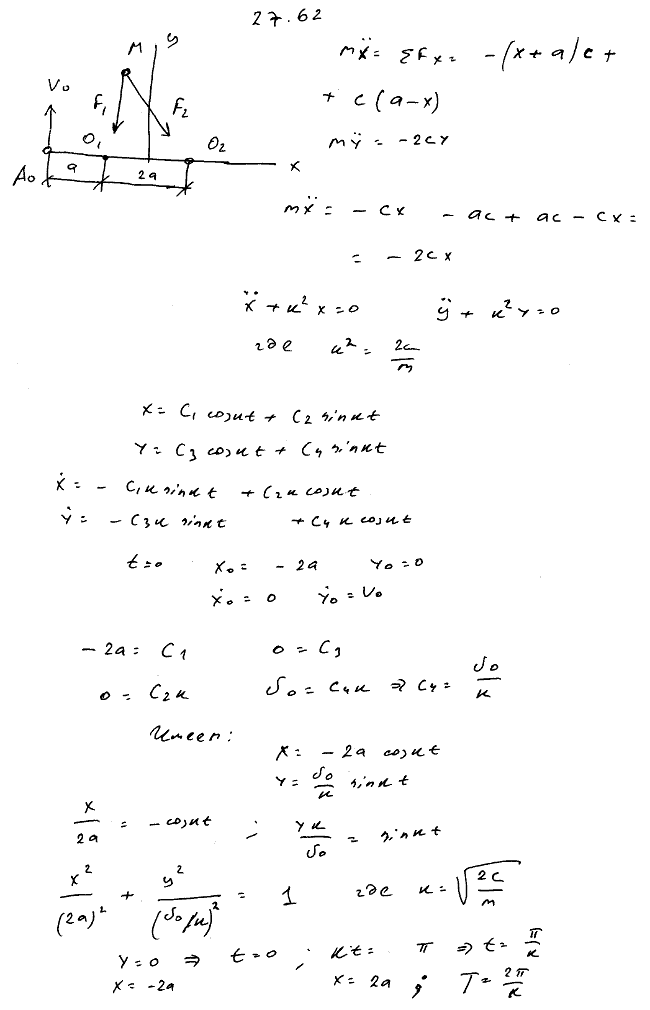 27.62
M y
V₀ F₁ F₂
O₁ O₂
A₀ a 2a x
mẍ = ΣFx = -(x+a)c +
+ c(a-x)
mÿ = -2cy
mẍ = -cx - ac + ac - cx =
= -2cx
ẍ + к²x = 0 ÿ + к²y = 0
где к² = 2c/m
x = C₁ cosкt + C₂ sinкt
y = C₃ cosкt + C₄ sinкt
ẋ = -C₁к sinкt + C₂к cosкt
ẏ = -C₃к sinкt + C₄к cosкt
t=0 x₀ = -2a y₀ = 0
ẋ₀ = 0 ẏ₀ = V₀
-2a = C₁ 0 = C₃
0 = C₂к v₀ = C₄к ⇒ C₄ = v₀/к
Имеем:
x = -2a cosкt
y = v₀/к sinкt
x/2a = -cosкt ; yк/v₀ = sinкt
x²/(2a)² + y²/(v₀/к)² = 1 где к = √(2c/m)
y=0 ⇒ t=0 ; кt = π ⇒ t = π/к
x = -2a x = 2a ; T = 2π/к